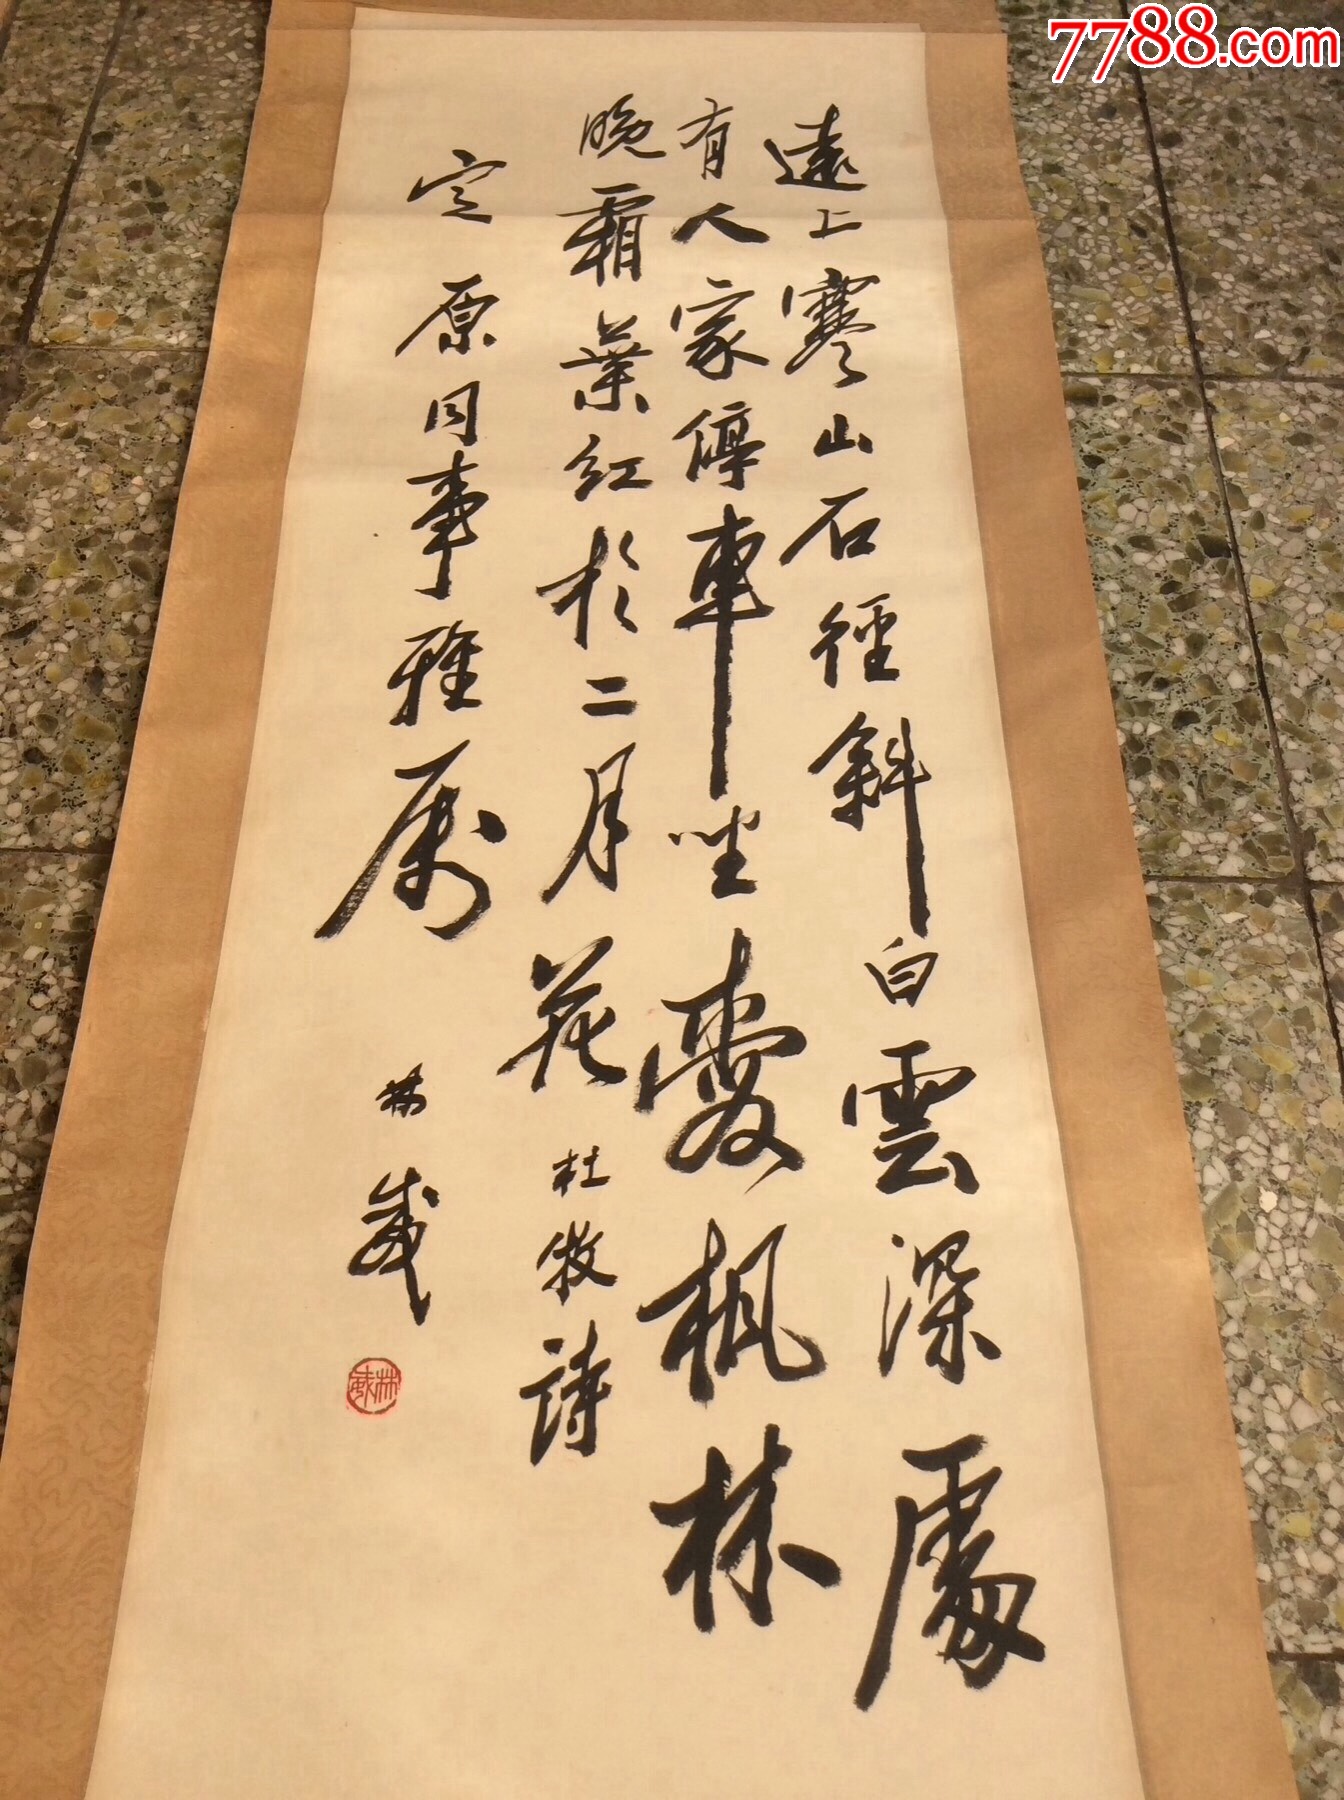 7788.com
遠上寒山石徑斜白雲深處
有人家停車坐愛楓林
晚霜葉紅於二月花
杜牧詩
定原同事雅属
林威
林威